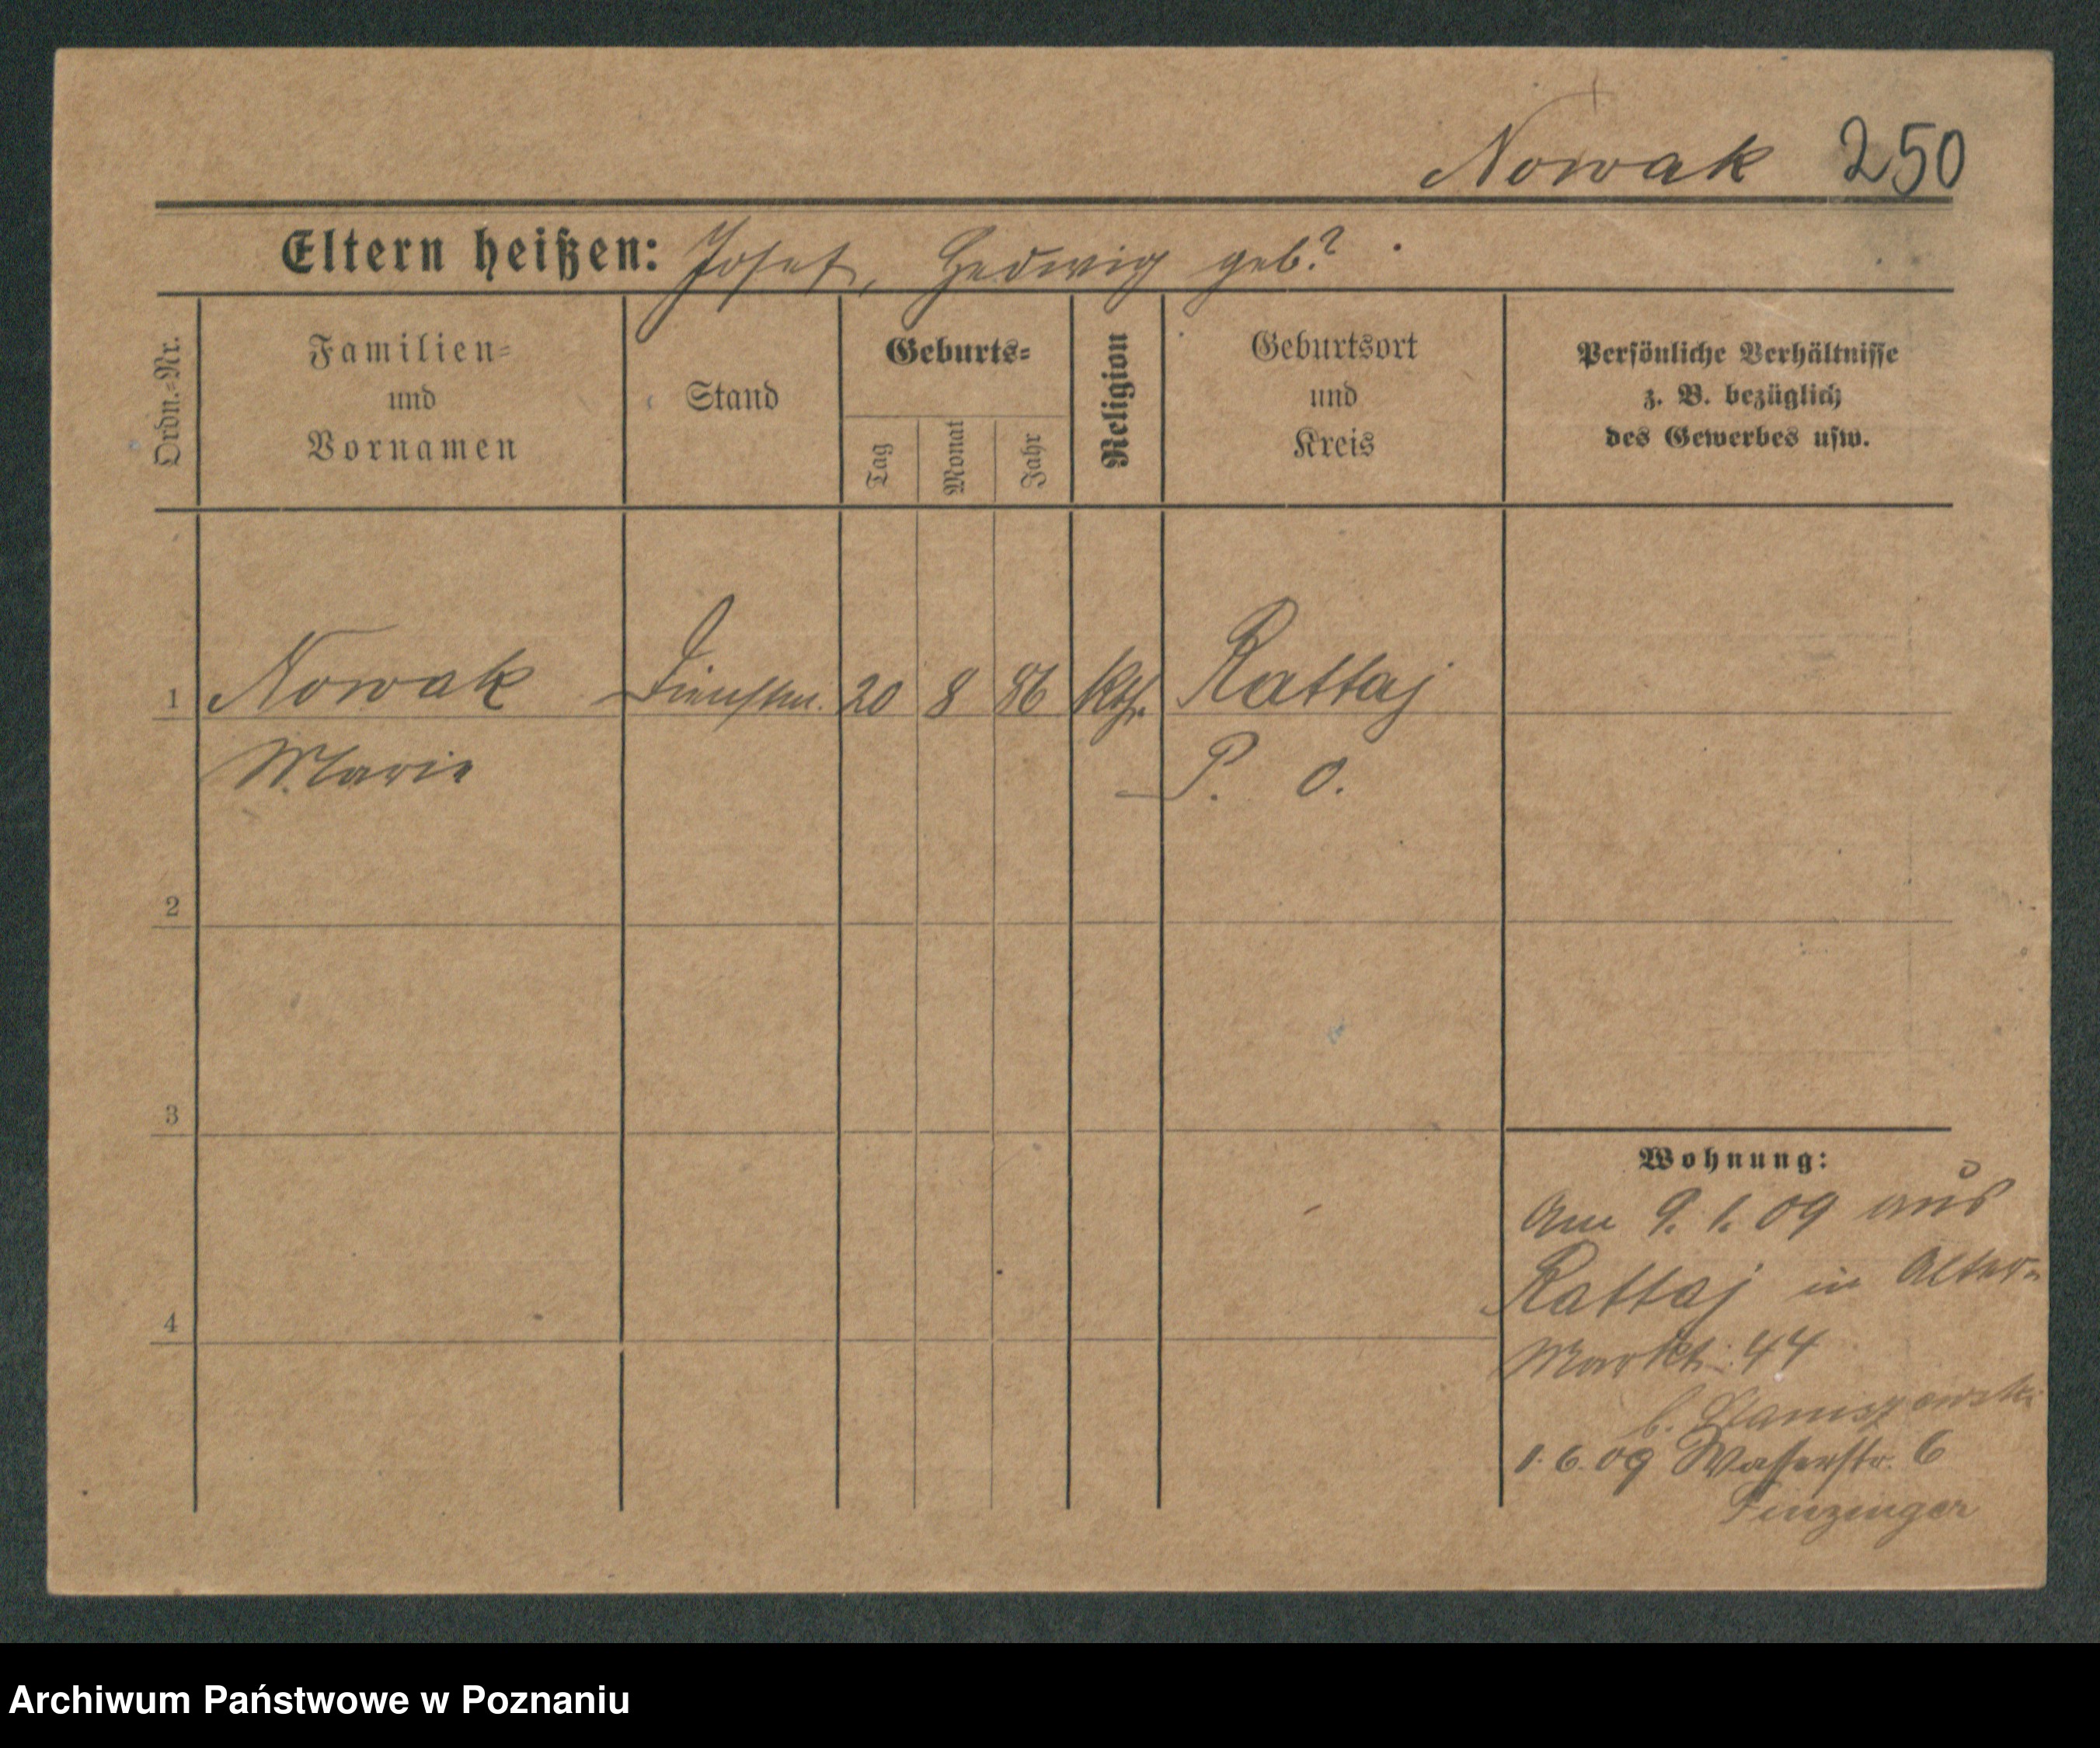 Nowak 250
Eltern heißen: Josef, Hedwig geb?
Ordn.=Nr.
Familien=
und
Vornamen
Stand
Geburts=
Tag
Monat
Jahr
Religion
Geburtsort
und
Kreis
Persönliche Verhältnisse
z. B. bezüglich
des Gewerbes usw.
1 Nowak Dienstm. 20 8 86 kth. Rattaj
Marie P. O.
2
3
4
Wohnung:
Am 9. 1. 09 aus
Rattaj in Alter=
Markt 44
b.
1. 6. 09 Wasserstr. 6
Finzinger
Archiwum Państwowe w Poznaniu